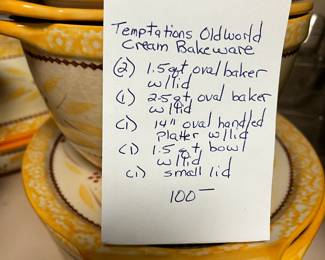 Temptations Oldworld
Cream Bakeware
(2) 1.5 qt oval baker
w/lid
(1) 2.5 qt oval baker
w/lid
(1) 14" oval handled
Platter w/lid
(1) 1.5 qt bowl
w/lid
(1) small lid
100—